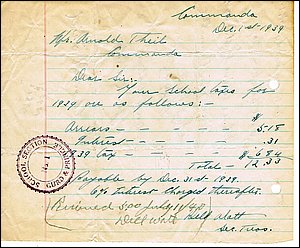 Commanda
Dec. 1st 1939
Mr. Arnold Theil
Commanda
Dear Sir:-
Your school taxes for
1939 are as follows:-
$
Arrears - - - 5.18
Interest - - - .31
39 tax - - - $ 6.84
Total - 12.33
Payable by Dec. 31st 1939.
6% interest charged thereafter.
Received 5.00 July 11/40
Sec. Treas.
SCHOOL SECTION